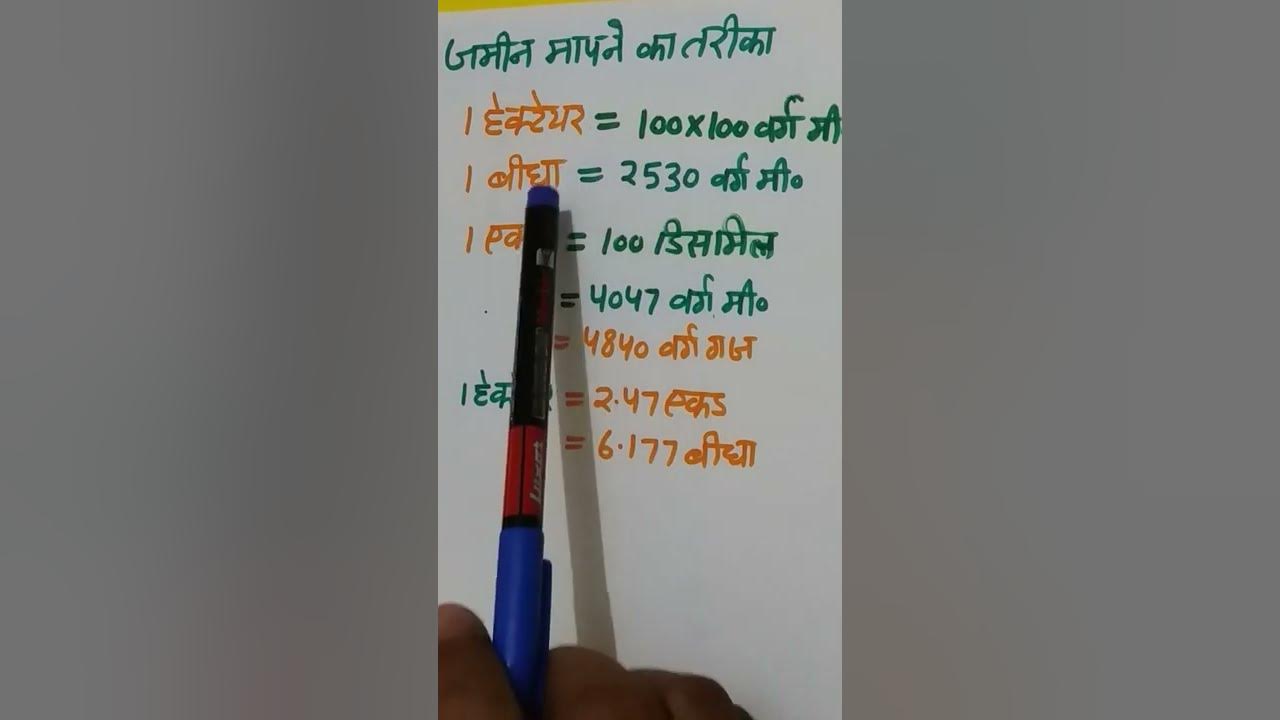 जमीन मापने का तरीका
1 हेक्टेयर = 100×100 वर्ग मी
1 बीघा = 2530 वर्ग मी०
1 = 100 डिसमिल
= 4047 वर्ग मी०
= 4840 वर्ग गज
1 = 2.47 एकड
= 6.177 बीघा
Luxor